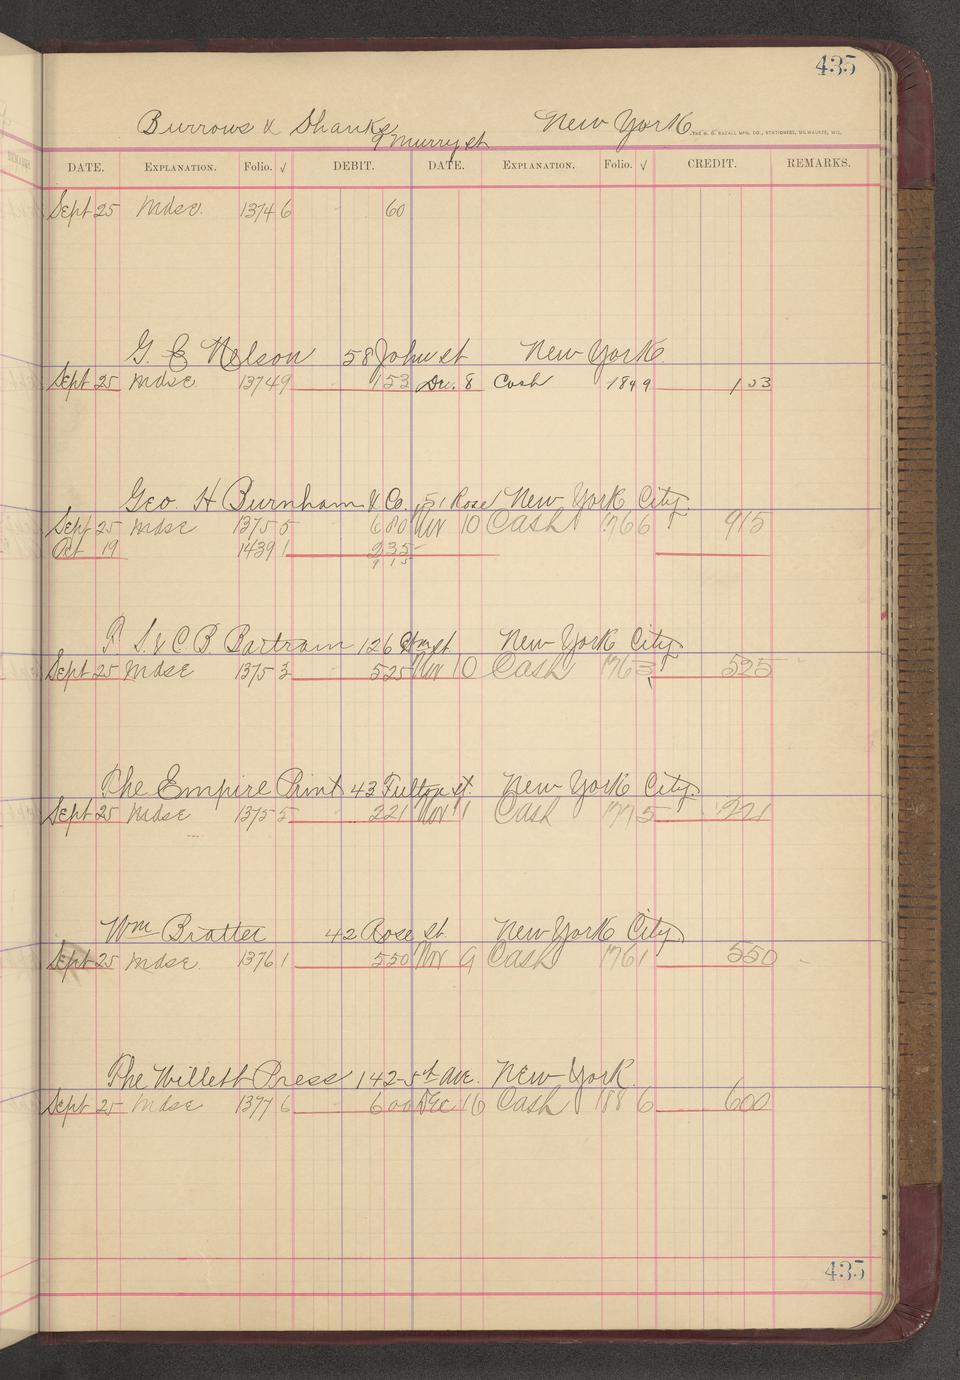 435
Burrows & Shanks New York
9 Murry st
THE H. G. RAZALL MFG. CO., STATIONERS, MILWAUKEE, WIS.
DATE. EXPLANATION. Folio. √ DEBIT. DATE. EXPLANATION. Folio. √ CREDIT. REMARKS.
Sept 25 Mdse. 1374 6 60
G. E Nelson 58 John st New York
Sept 25 Mdse 1374 9 153 Dec. 8 Cash 184 9 153
Geo. H Burnham & Co. 51 Rose New York City
Sept 25 Mdse 1375 5 680 Nov 10 Cash 1766 915
Oct 19 1439 1 235
915
P. S. & C B. Bartram 126 st. New York City
Sept 25 Mdse 1375 3 525 Nov 10 Cash 1763 525
The Empire Print 43 Fulton st. New York City
Sept 25 Mdse 1375 5 221 Nov 11 Cash 1775 221
Wm Bratter 42 Rose st New York City
Sept 25 Mdse. 1376 1 550 Nov 9 Cash 1761 550
The Willett Press 142-5th Ave. New York.
Sept 25 Mdse 1377 6 600 Dec 16 Cash 188 6 600
435